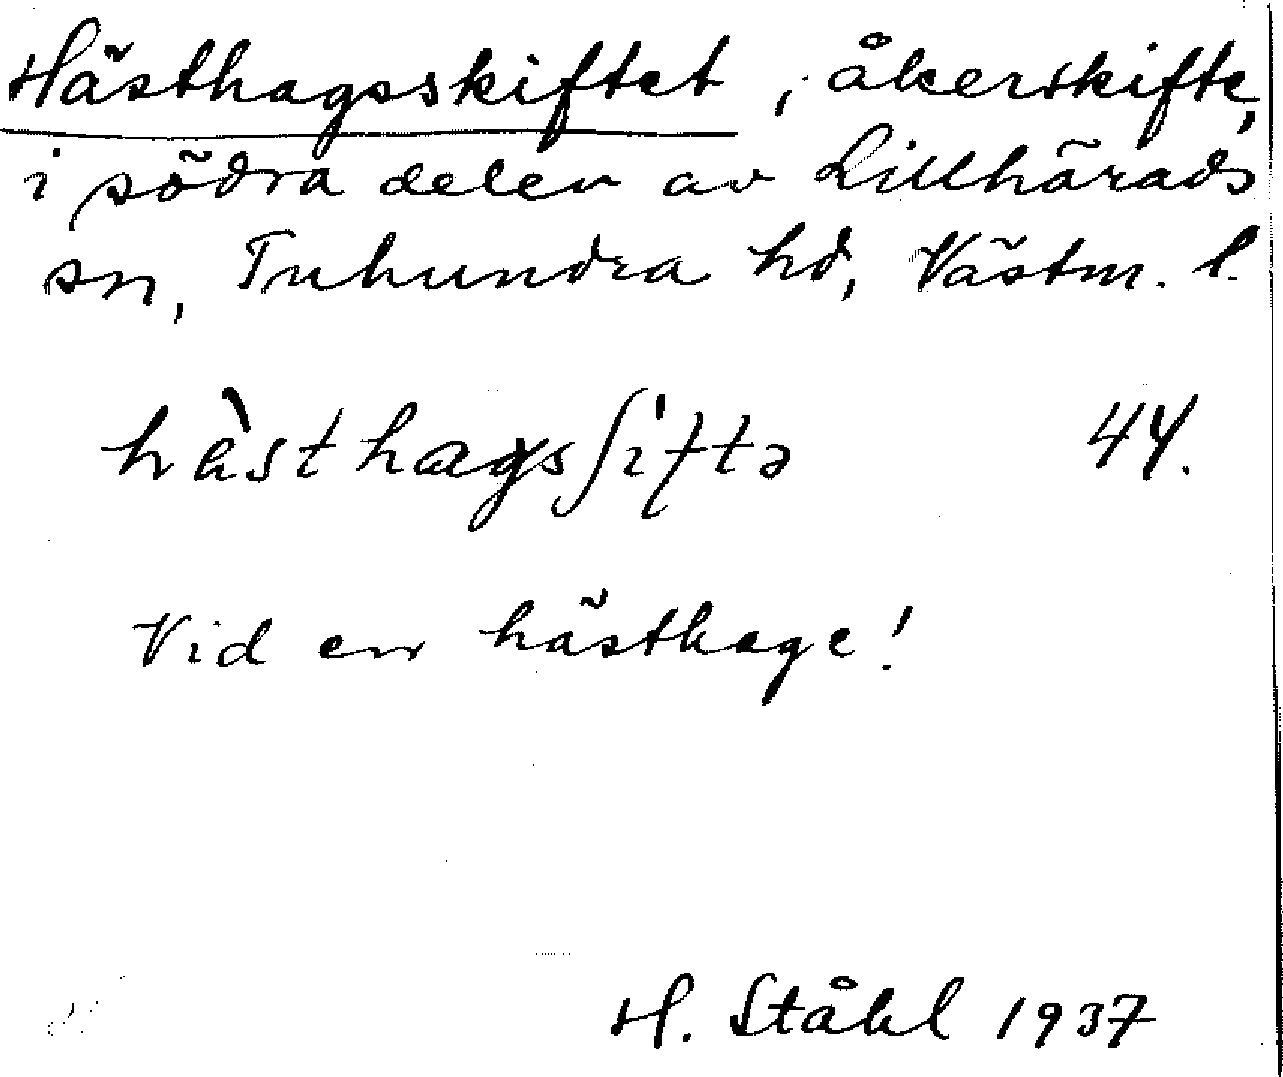 Hästhagsskiftet, åkerskifte,
i södra delen av Lillhärads
sn, Tuhundra hd, Västm. l.
hὲsthagsʃiftə 44.
Vid en hästhage!
H. Ståhl 1937